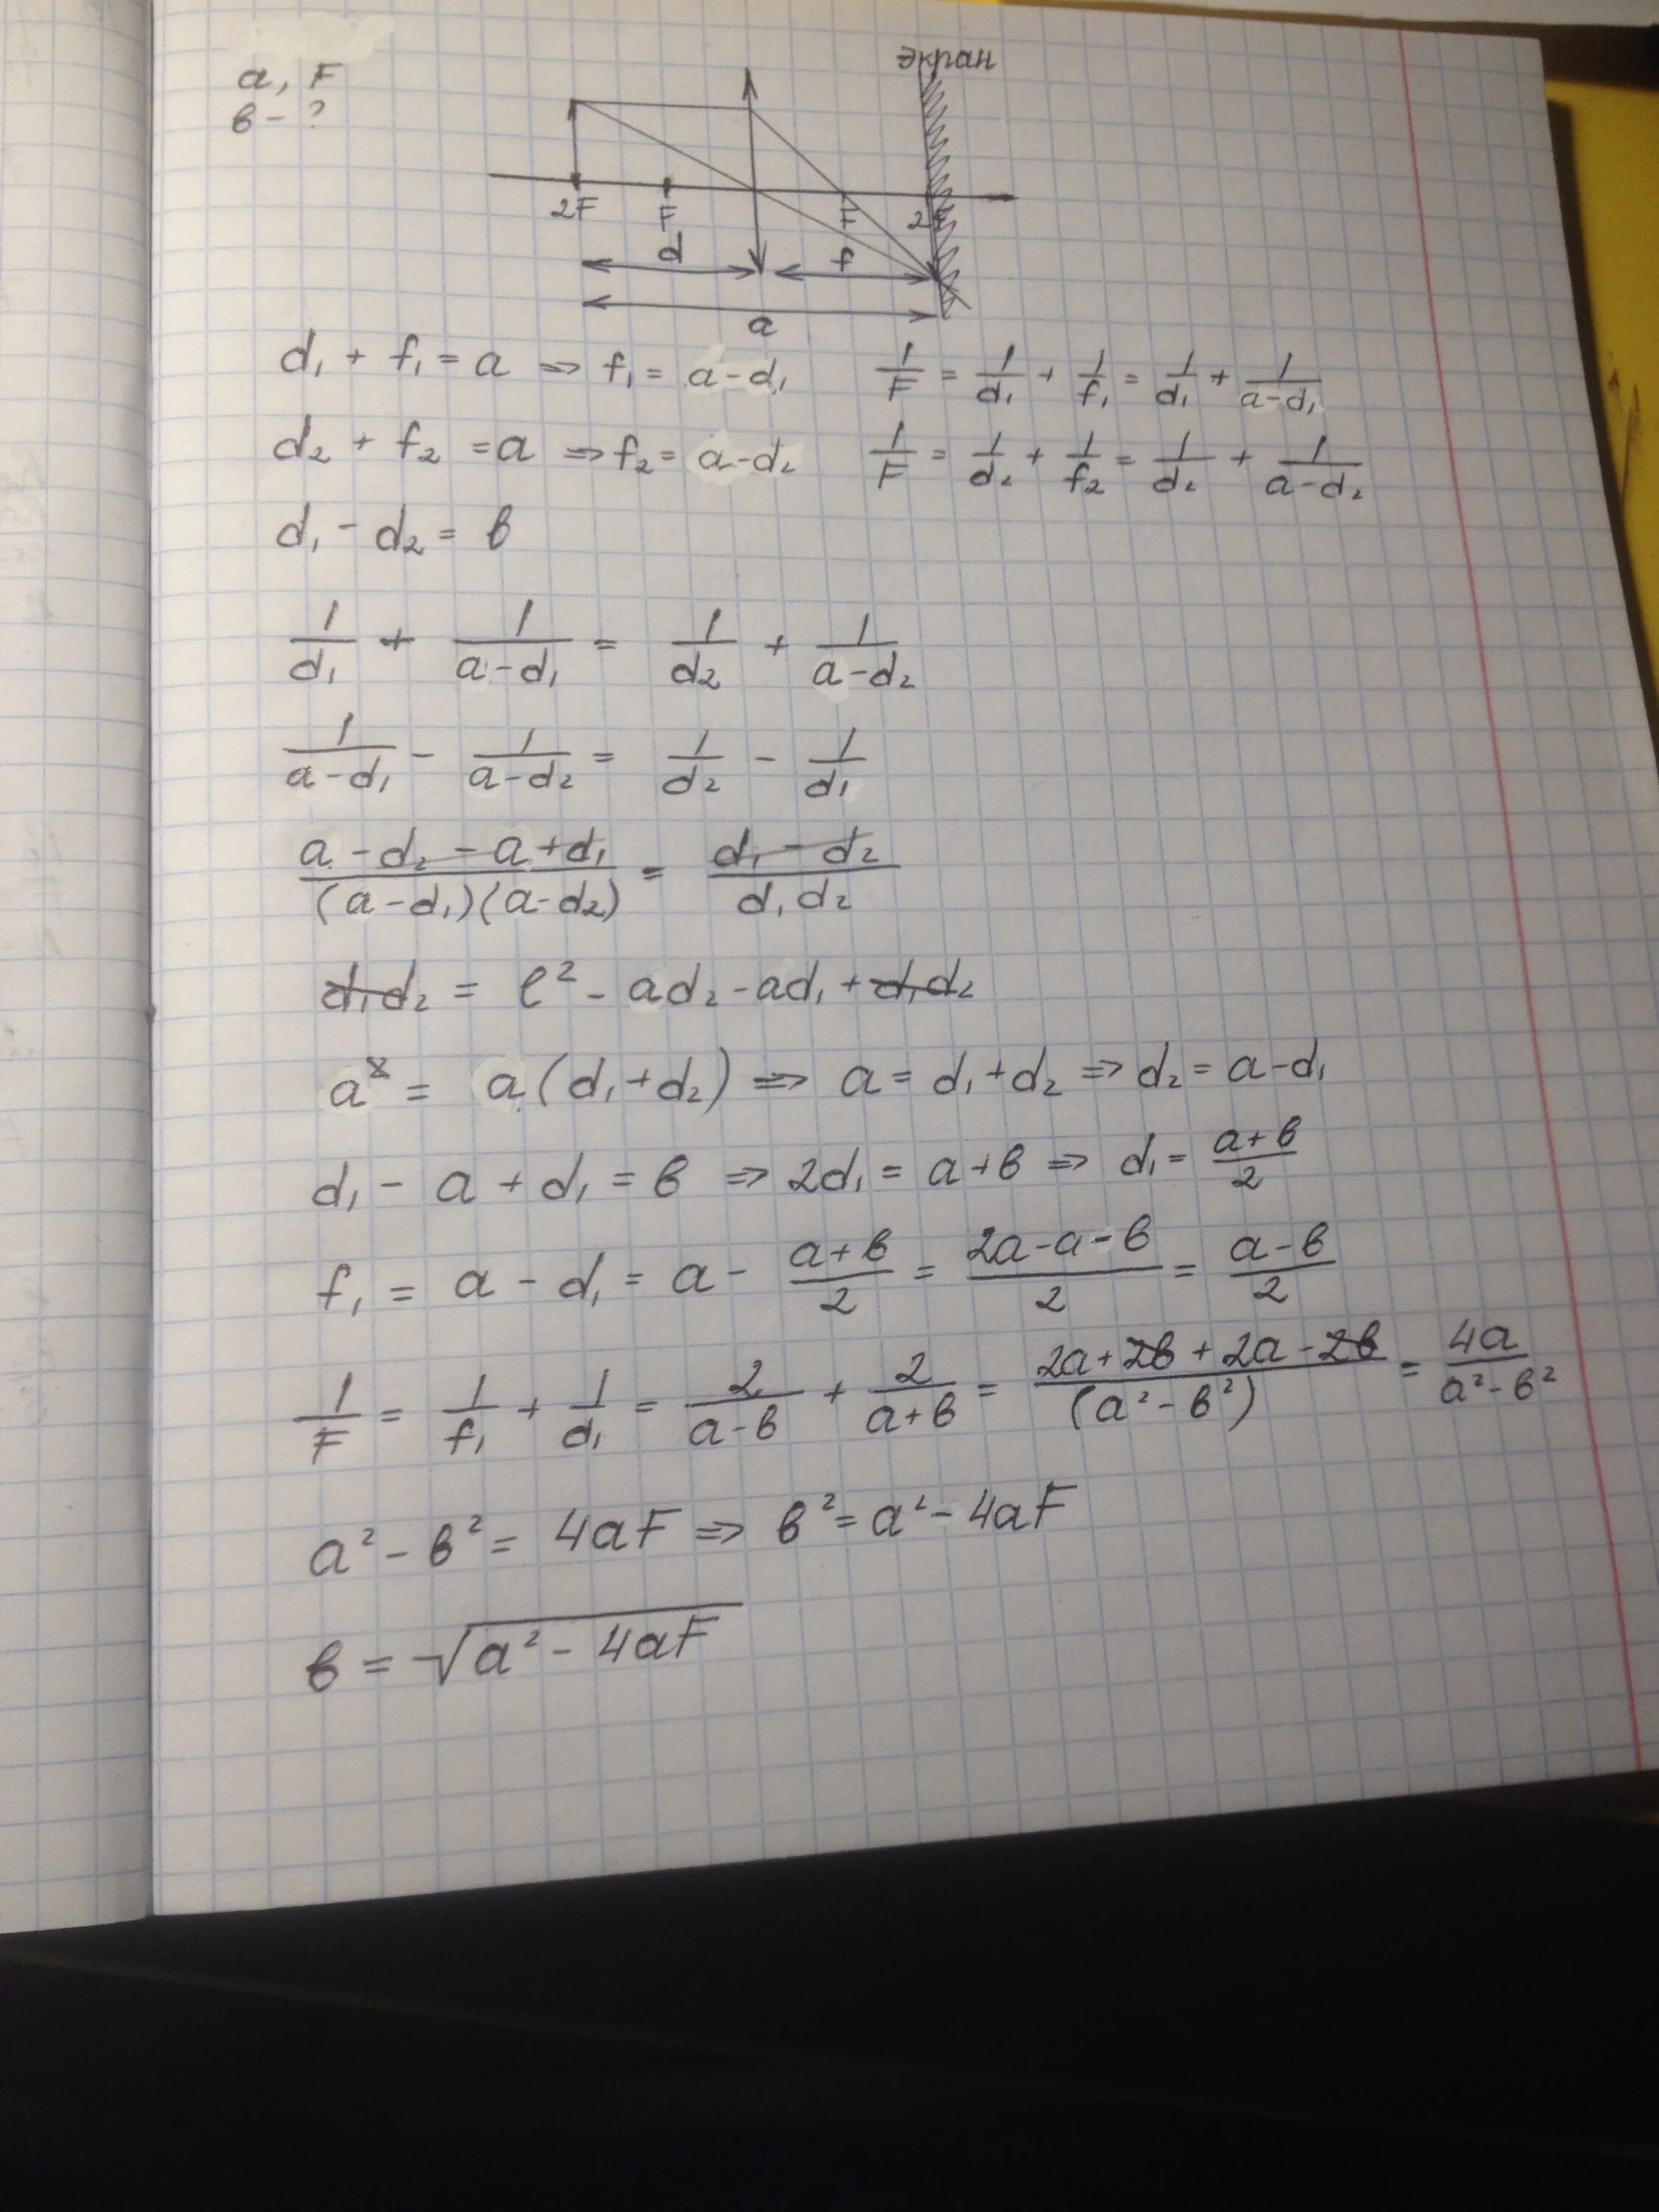 экран
a, F
в - ?
2F F F 2F
d f
a
d₁ + f₁ = a => f₁ = a - d₁ 1/F = 1/d₁ + 1/f₁ = 1/d₁ + 1/(a-d₁)
d₂ + f₂ = a => f₂ = a - d₂ 1/F = 1/d₂ + 1/f₂ = 1/d₂ + 1/(a-d₂)
d₁ - d₂ = в
1/d₁ + 1/(a-d₁) = 1/d₂ + 1/(a-d₂)
1/(a-d₁) - 1/(a-d₂) = 1/d₂ - 1/d₁
(a - d₂ - a + d₁)/((a-d₁)(a-d₂)) = (d₁ - d₂)/(d₁d₂)
d₁d₂ = l² - ad₂ - ad₁ + d₁d₂
a² = a(d₁+d₂) => a = d₁+d₂ => d₂ = a-d₁
d₁ - a + d₁ = в => 2d₁ = a+в => d₁ = (a+в)/2
f₁ = a - d₁ = a - (a+в)/2 = (2a-a-в)/2 = (a-в)/2
1/F = 1/f₁ + 1/d₁ = 2/(a-в) + 2/(a+в) = (2a+2в+2a-2в)/(a²-в²) = 4a/(a²-в²)
a² - в² = 4aF => в² = a² - 4aF
в = √(a² - 4aF)